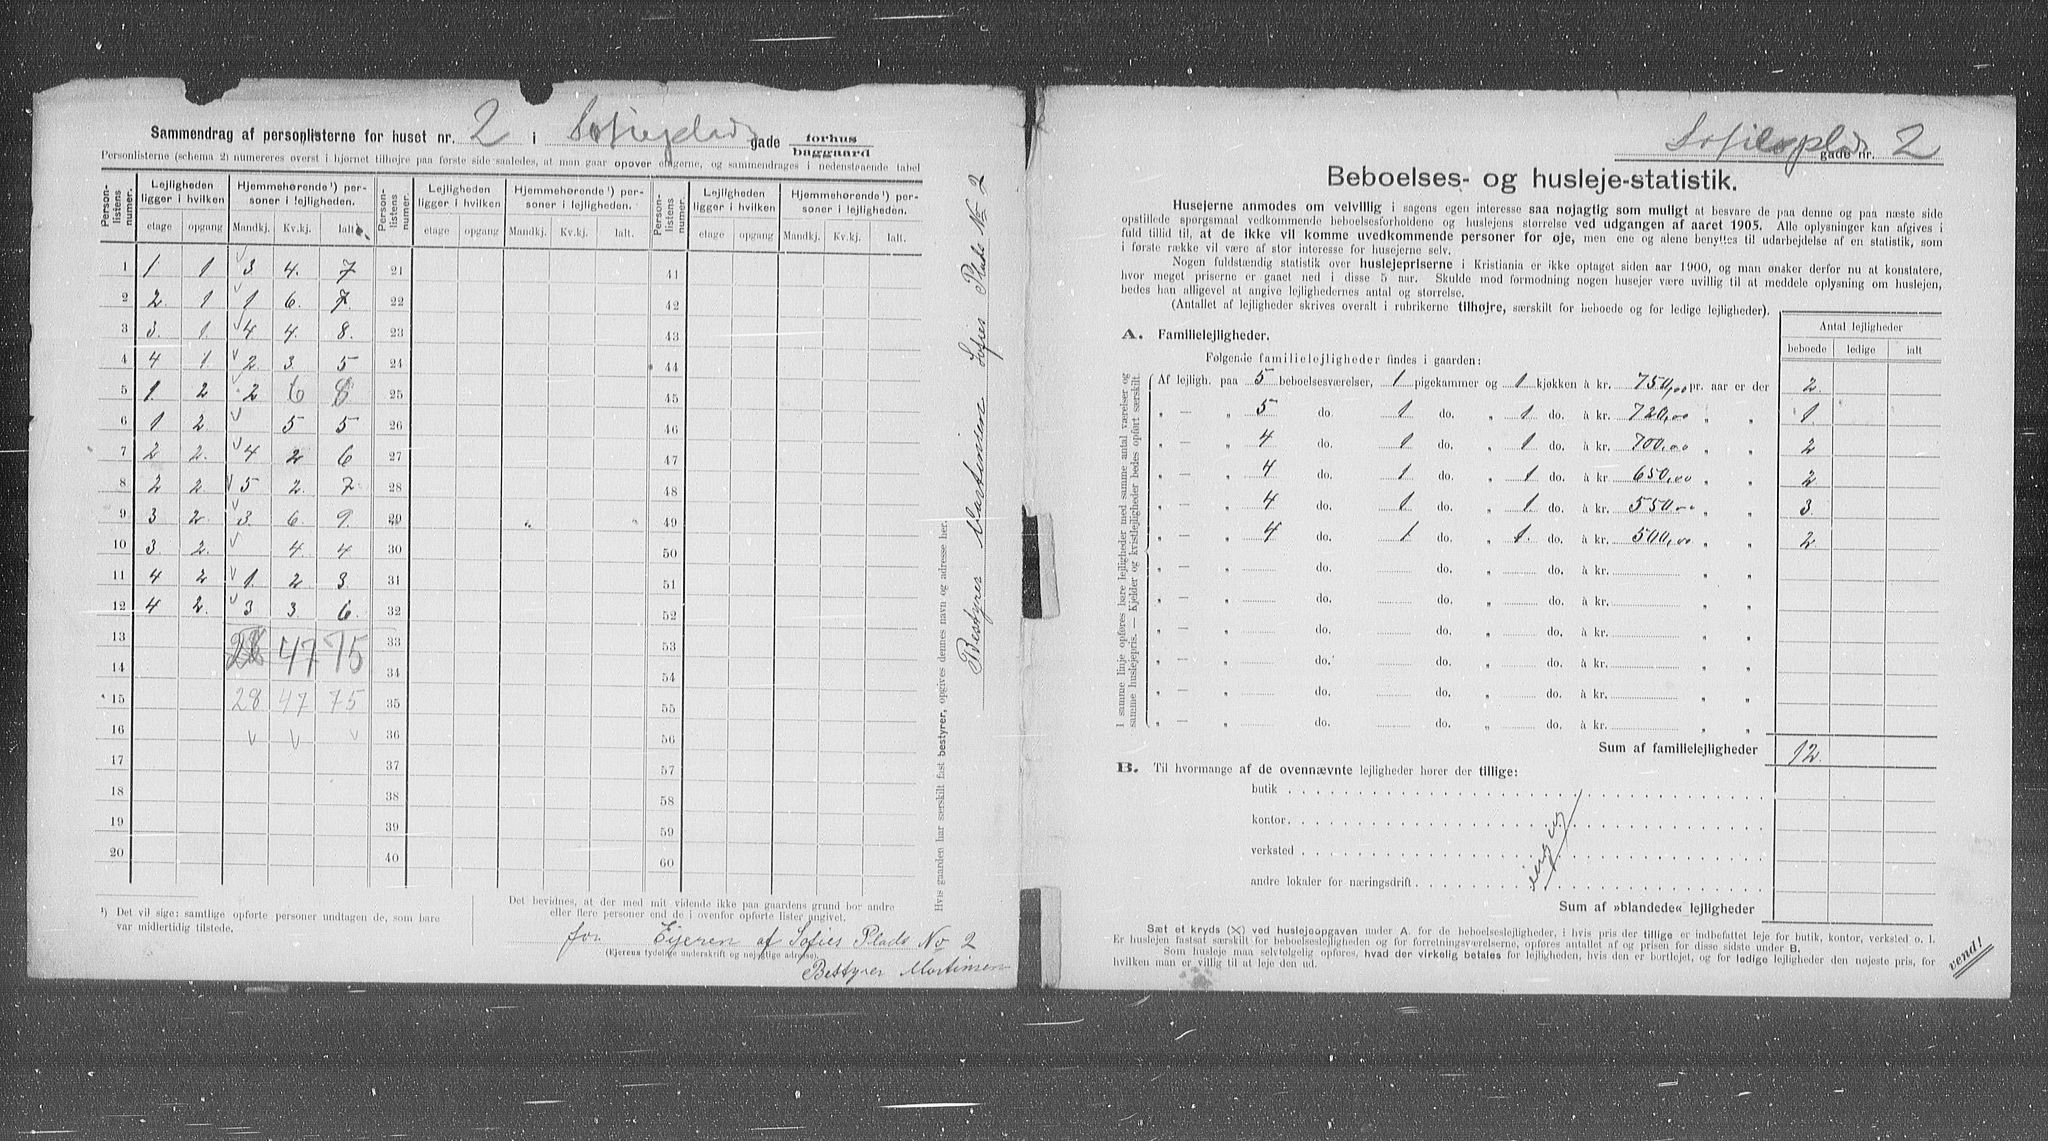 Sammendrag af personlisterne for huset nr. 2 i Sofiesplads gade forhus baggaard
Personlisterne (schema 2) numereres øverst i hjørnet tilhøjre paa første side saaledes, at man gaar opover etagerne, og sammendrages i nedenstaaende tabel
Person-listens numer. Lejligheden ligger i hvilken Hjemmehørende¹) personer i lejligheden. Person-listens numer. Lejligheden ligger i hvilken Hjemmehørende¹) personer i lejligheden. Person-listens numer. Lejligheden ligger i hvilken Hjemmehørende¹) personer i lejligheden.
etage opgang Mandkj. Kv.kj. Ialt. etage opgang Mandkj. Kv.kj. Ialt. etage opgang Mandkj. Kv.kj. Ialt.
1 1 1 3 4. 7 21 41
2 2. 1 1 6. 7. 22 42
3 3. 1. 4 4. 8. 23 43
4 4 1 2 3. 5 24 44
5 1 2 2 6 8 25 45
6 1 2. 5 5 26 46
7 2 2. 4 2 6 27 47
8 2 2. 5 2. 7 28 48
9 3 2. 3. 6. 9. 29 49
10 3. 2. 4. 4 30 50
11 4 2 1. 2 3. 31 51
12 4 2. 3 3. 6. 32 52
13 28 47 75 33 53
14 34 54
15 28 47 75 35 55
16 v v v 36 56
17 37 57
18 38 58
19 39 59
20 40 60
¹) Det vil sige: samtlige opførte personer undtagen de, som bare
var midlertidig tilstede.
Det bevidnes, at der med mit vidende ikke paa gaardens grund bor andre
eller flere personer end de i ovenfor opførte lister angivet.
for Ejeren af Sofies Plads No 2
(Ejerens tydelige underskrift og nøjagtige adresse).
Bestyrer Martinsen
Hvis gaarden har særskilt fast bestyrer, opgives dennes navn og adresse her.
Bestyrer Martinsen Sofies Plads No 2
Sofiesplads gade nr. 2
Beboelses- og husleje-statistik.
Husejerne anmodes om velvillig i sagens egen interesse saa nøjagtig som muligt at besvare de paa denne og paa næste side
opstillede spørgsmaal vedkommende beboelsesforholdene og huslejens størrelse ved udgangen af aaret 1905. Alle oplysninger kan afgives i
fuld tillid til, at de ikke vil komme uvedkommende personer for øje, men ene og alene benyttes til udarbejdelse af en statistik, som
i første række vil være af stor interesse for husejerne selv.
Nogen fuldstændig statistik over huslejepriserne i Kristiania er ikke optaget siden aar 1900, og man ønsker derfor nu at konstatere,
hvor meget priserne er gaaet ned i disse 5 aar. Skulde mod formodning nogen husejer være uvillig til at meddele oplysning om huslejen,
bedes han alligevel at angive lejlighedernes antal og størrelse.
(Antallet af lejligheder skrives overalt i rubrikerne tilhøjre, særskilt for beboede og for ledige lejligheder).
Antal lejligheder
beboede ledige ialt
A. Familielejligheder.
Følgende familielejligheder findes i gaarden:
I samme linje opføres børe lejligheder med samme antal værelser og
samme huslejepris. — Kjelder og kvistlejligheder bedes opført særskilt.
Af lejligh. paa 5 beboelsesværelser, 1 pigekammer og 1 kjøkken à kr. 750,00 pr. aar er der 2.
„ — „ 5 do. 1 do. „ 1 do. à kr. 720,00 „ „ 1.
„ — „ 4 do. 1 do. „ 1 do. à kr. 700,00 „ „ 2
„ — „ 4 do. 1 do. „ 1 do. à kr. 650,00 „ „ 2
„ — „ 4 do. 1 do. „ 1 do. à kr. 550,00 „ „ 3.
„ — „ 4 do. 1 do. „ 1. do. à kr. 500,00 „ „ 2
„ — „ do. do. „ do. à kr. „ „
„ — „ do. do. „ do. à kr. „ „
„ — „ do. do. „ do. à kr. „ „
„ — „ do. do. „ do. à kr. „ „
„ — „ do. do. „ do. à kr. „ „
„ — „ do. do. „ do. à kr. „ „
Sum af familielejligheder 12.
B. Til hvormange af de ovennævnte lejligheder hører der tillige:
butik
kontor
verksted
andre lokaler for næringsdrift
ingen
Sum af »blandede« lejligheder
Sæt et kryds (X) ved huslejeopgaven under A. for de beboelseslejligheder, i hvis pris der tillige er indbefattet leje for butik, kontor, verksted o. l.
Er huslejen fastsat særskilt for beboelseslejligheden og for forretningsværelserne, opføres antallet af og prisen for disse sidste under B.
Som husleje maa selvfølgelig opføres, hvad der virkelig betales for lejligheden, hvis den er bortlejet, og for ledige lejligheder den nøjeste pris, for
hvilken man er villig til at leje den ud.
vend!